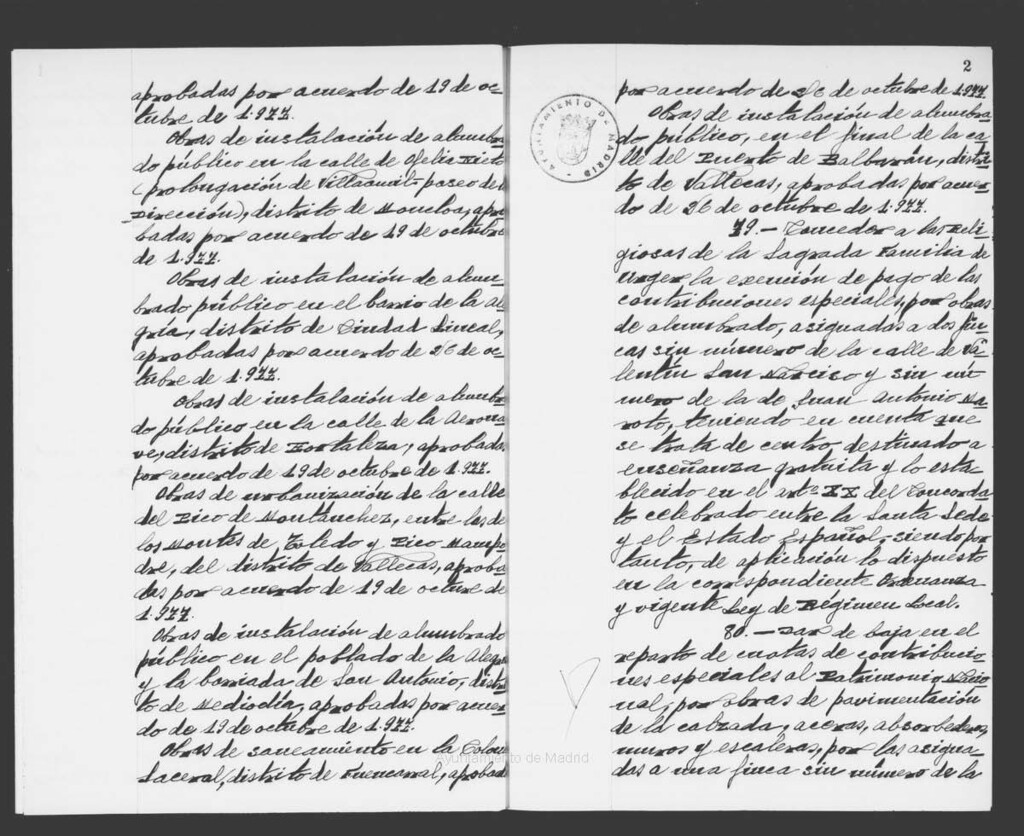 aprobadas por acuerdo de 19 de oc-
tubre de 1.977.
Obras de instalación de alumbra-
do público en la calle de Felix Nieto
(prolongación de Villaamil-paseo de
Dirección), distrito de Moncloa, apro-
badas por acuerdo de 19 de octubre
de 1.977.
Obras de instalación de alum-
brado público en el barrio de la Ale-
gría, distrito de Ciudad Lineal,
aprobadas por acuerdo de 26 de oc-
tubre de 1.977.
Obras de instalación de alumbra-
do público en la calle de la Aerona-
ve, distrito de Hortaleza, aprobadas
por acuerdo de 19 de octubre de 1.977.
Obras de urbanización de la calle
del Pico de Montánchez, entre las de
los Montes de Toledo y Pico Mampo-
dre, del distrito de Vallecas, aproba-
das por acuerdo de 19 de octure de
1.977.
Obras de instalación de alumbrado
público en el poblado de la Alegría
y la barriada de San Antonio, distri-
to de Mediodía, aprobadas por acuer-
do de 19 de octubre de 1.977.
Obras de saneamiento en la Colonia
Laceral, distrito de Fuencarral, aprobadas
2
AYUNTAMIENTO DE MADRID
por acuerdo de 26 de octubre de 1.977.
Obras de instalación de alumbra-
do público, en el final de la ca-
lle del Puerto de Balbarán, distri-
to de Vallecas, aprobadas por acuer-
do de 26 de octubre de 1.977.
79.- Conceder a las Reli-
giosas de la Sagrada Familia de
Urgel la exención de pago de las
contribuciones especiales, por obras
de alumbrado, asignadas a dos fin-
cas sin número de la calle de Va-
lentín San Narciso y sin nú-
mero de la de Juan Antonio Ma-
roto, teniendo en cuenta que
se trata de centro destinado a
enseñanza gratuita y lo esta-
blecido en el artº XX del Concorda-
to celebrado entre la Santa Sede
y el Estado Español, siendo por
tanto, de aplicación lo dispuesto
en la correspondiente Ordenanza
y vigente Ley de Régimen Local.
80.- Dar de baja en el
reparto de cuotas de contribucio-
nes especiales al Patrimonio Nacio-
nal, por obras de pavimentación
de la calzada, aceras, absorbederos,
muros y escaleras, por las asigna-
das a una finca sin número de la
Ayuntamiento de Madrid